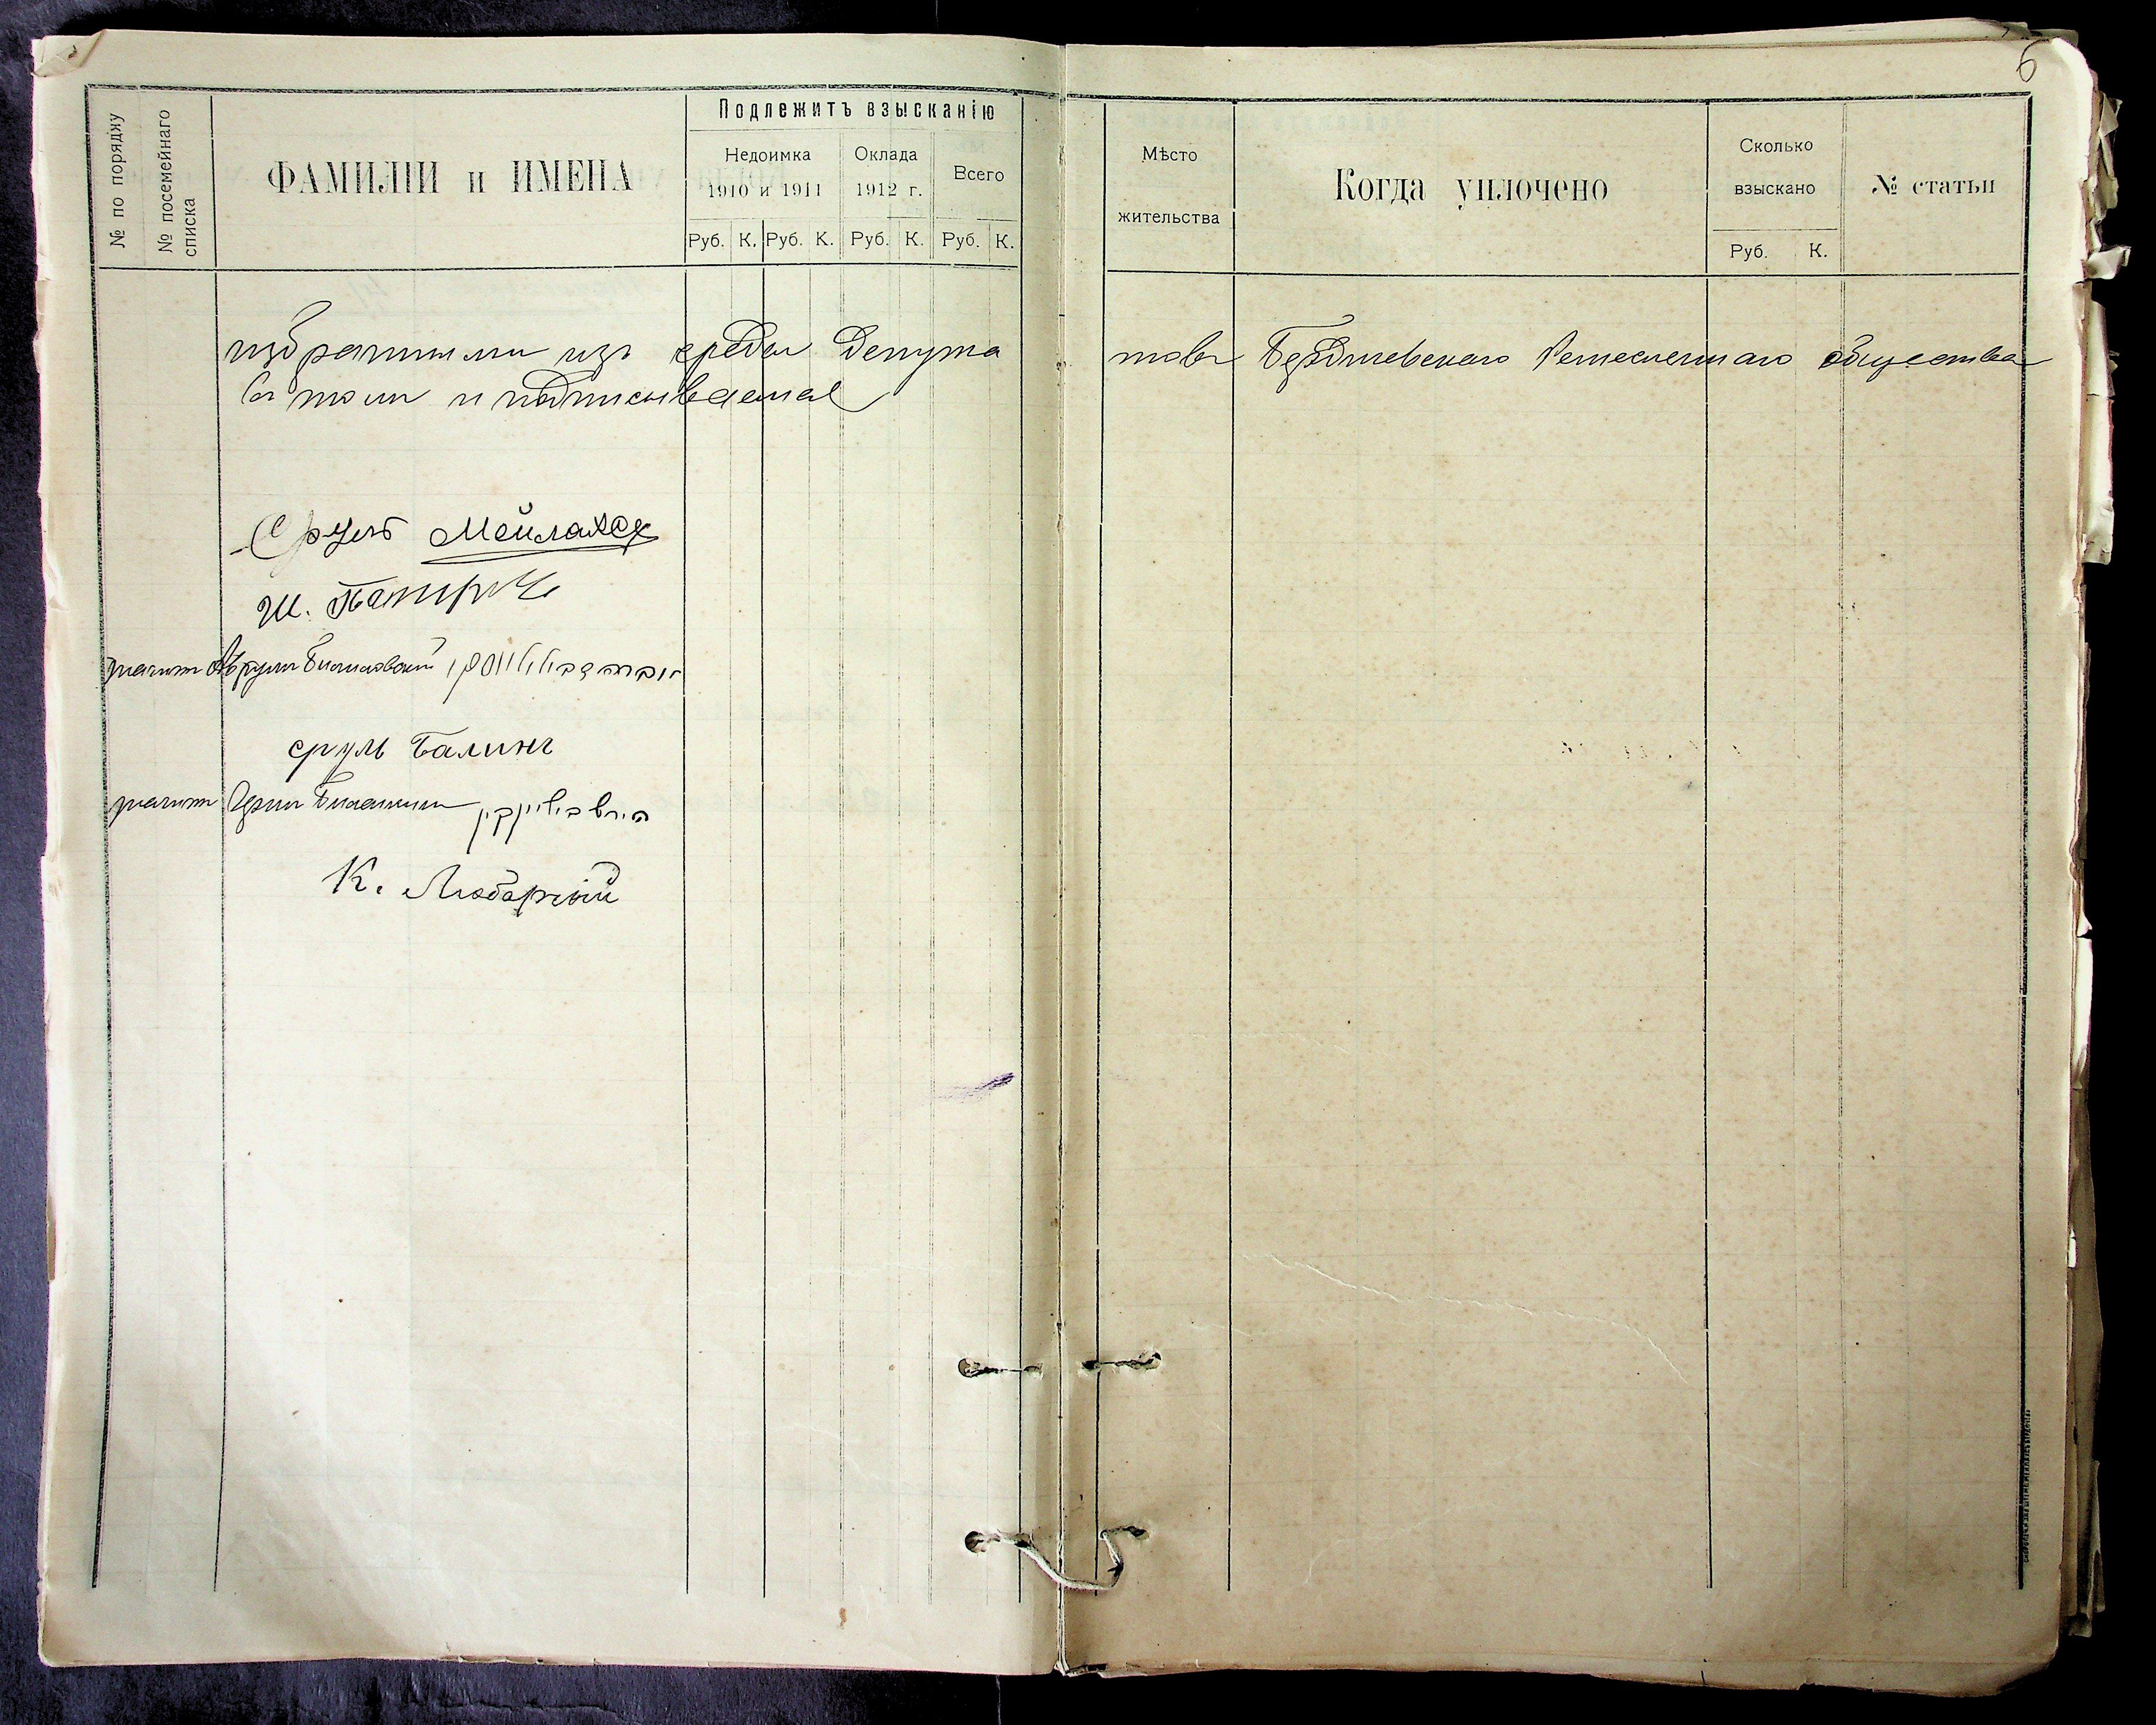 6
№ по порядку
№ посемейнаго списка
ФАМИЛІИ и ИМЕНА
Подлежитъ взысканію
Недоимка
1910 и 1911
Оклада
1912 г.
Всего
Руб. К. Руб. К. Руб. К. Руб. К.
Мѣсто
жительства
Когда уплочено
Сколько
взыскано
Руб. К.
№ статьи
избранными изъ среды Депута
товъ Бердичевскаго Ремесленнаго общества
въ томъ и подписываемся
Сруль Мейлахсъ
Ш.
значит Аврумъ
сруль Балинъ
значит
К. Любарскій